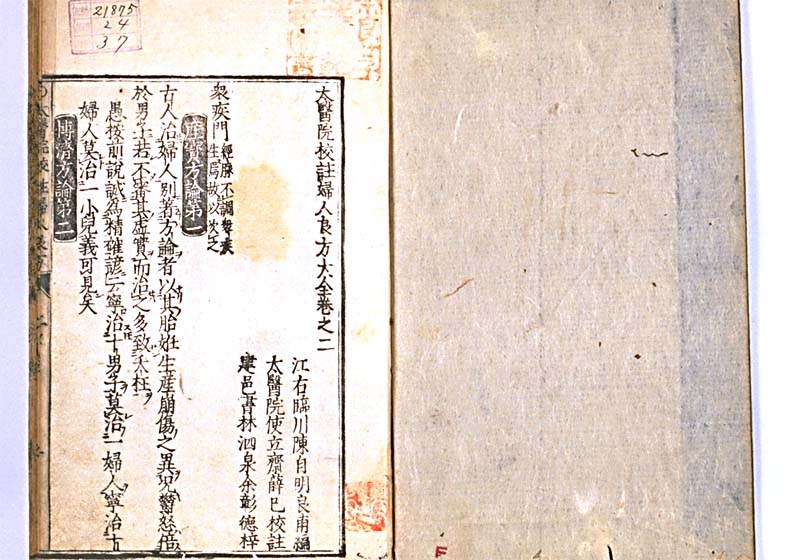 21875
24
37
太醫院校註婦人良方大全卷之二
江右臨川陳自明良甫編
太醫院使立齋薛已校註
建邑書林泗泉余彰德梓
衆疾門 經脉不調衆疾
生焉故以次之
産寶方論第一
古人治婦人別著方論者以其胎姙生産崩傷之異況鬱怒倍
於男子若不審其虛實而治之多致夭枉
愚按前說誠爲精確諺云寧治十男子莫治一婦人寧治十
婦人莫治一小兒義可見矣
博濟方論第二